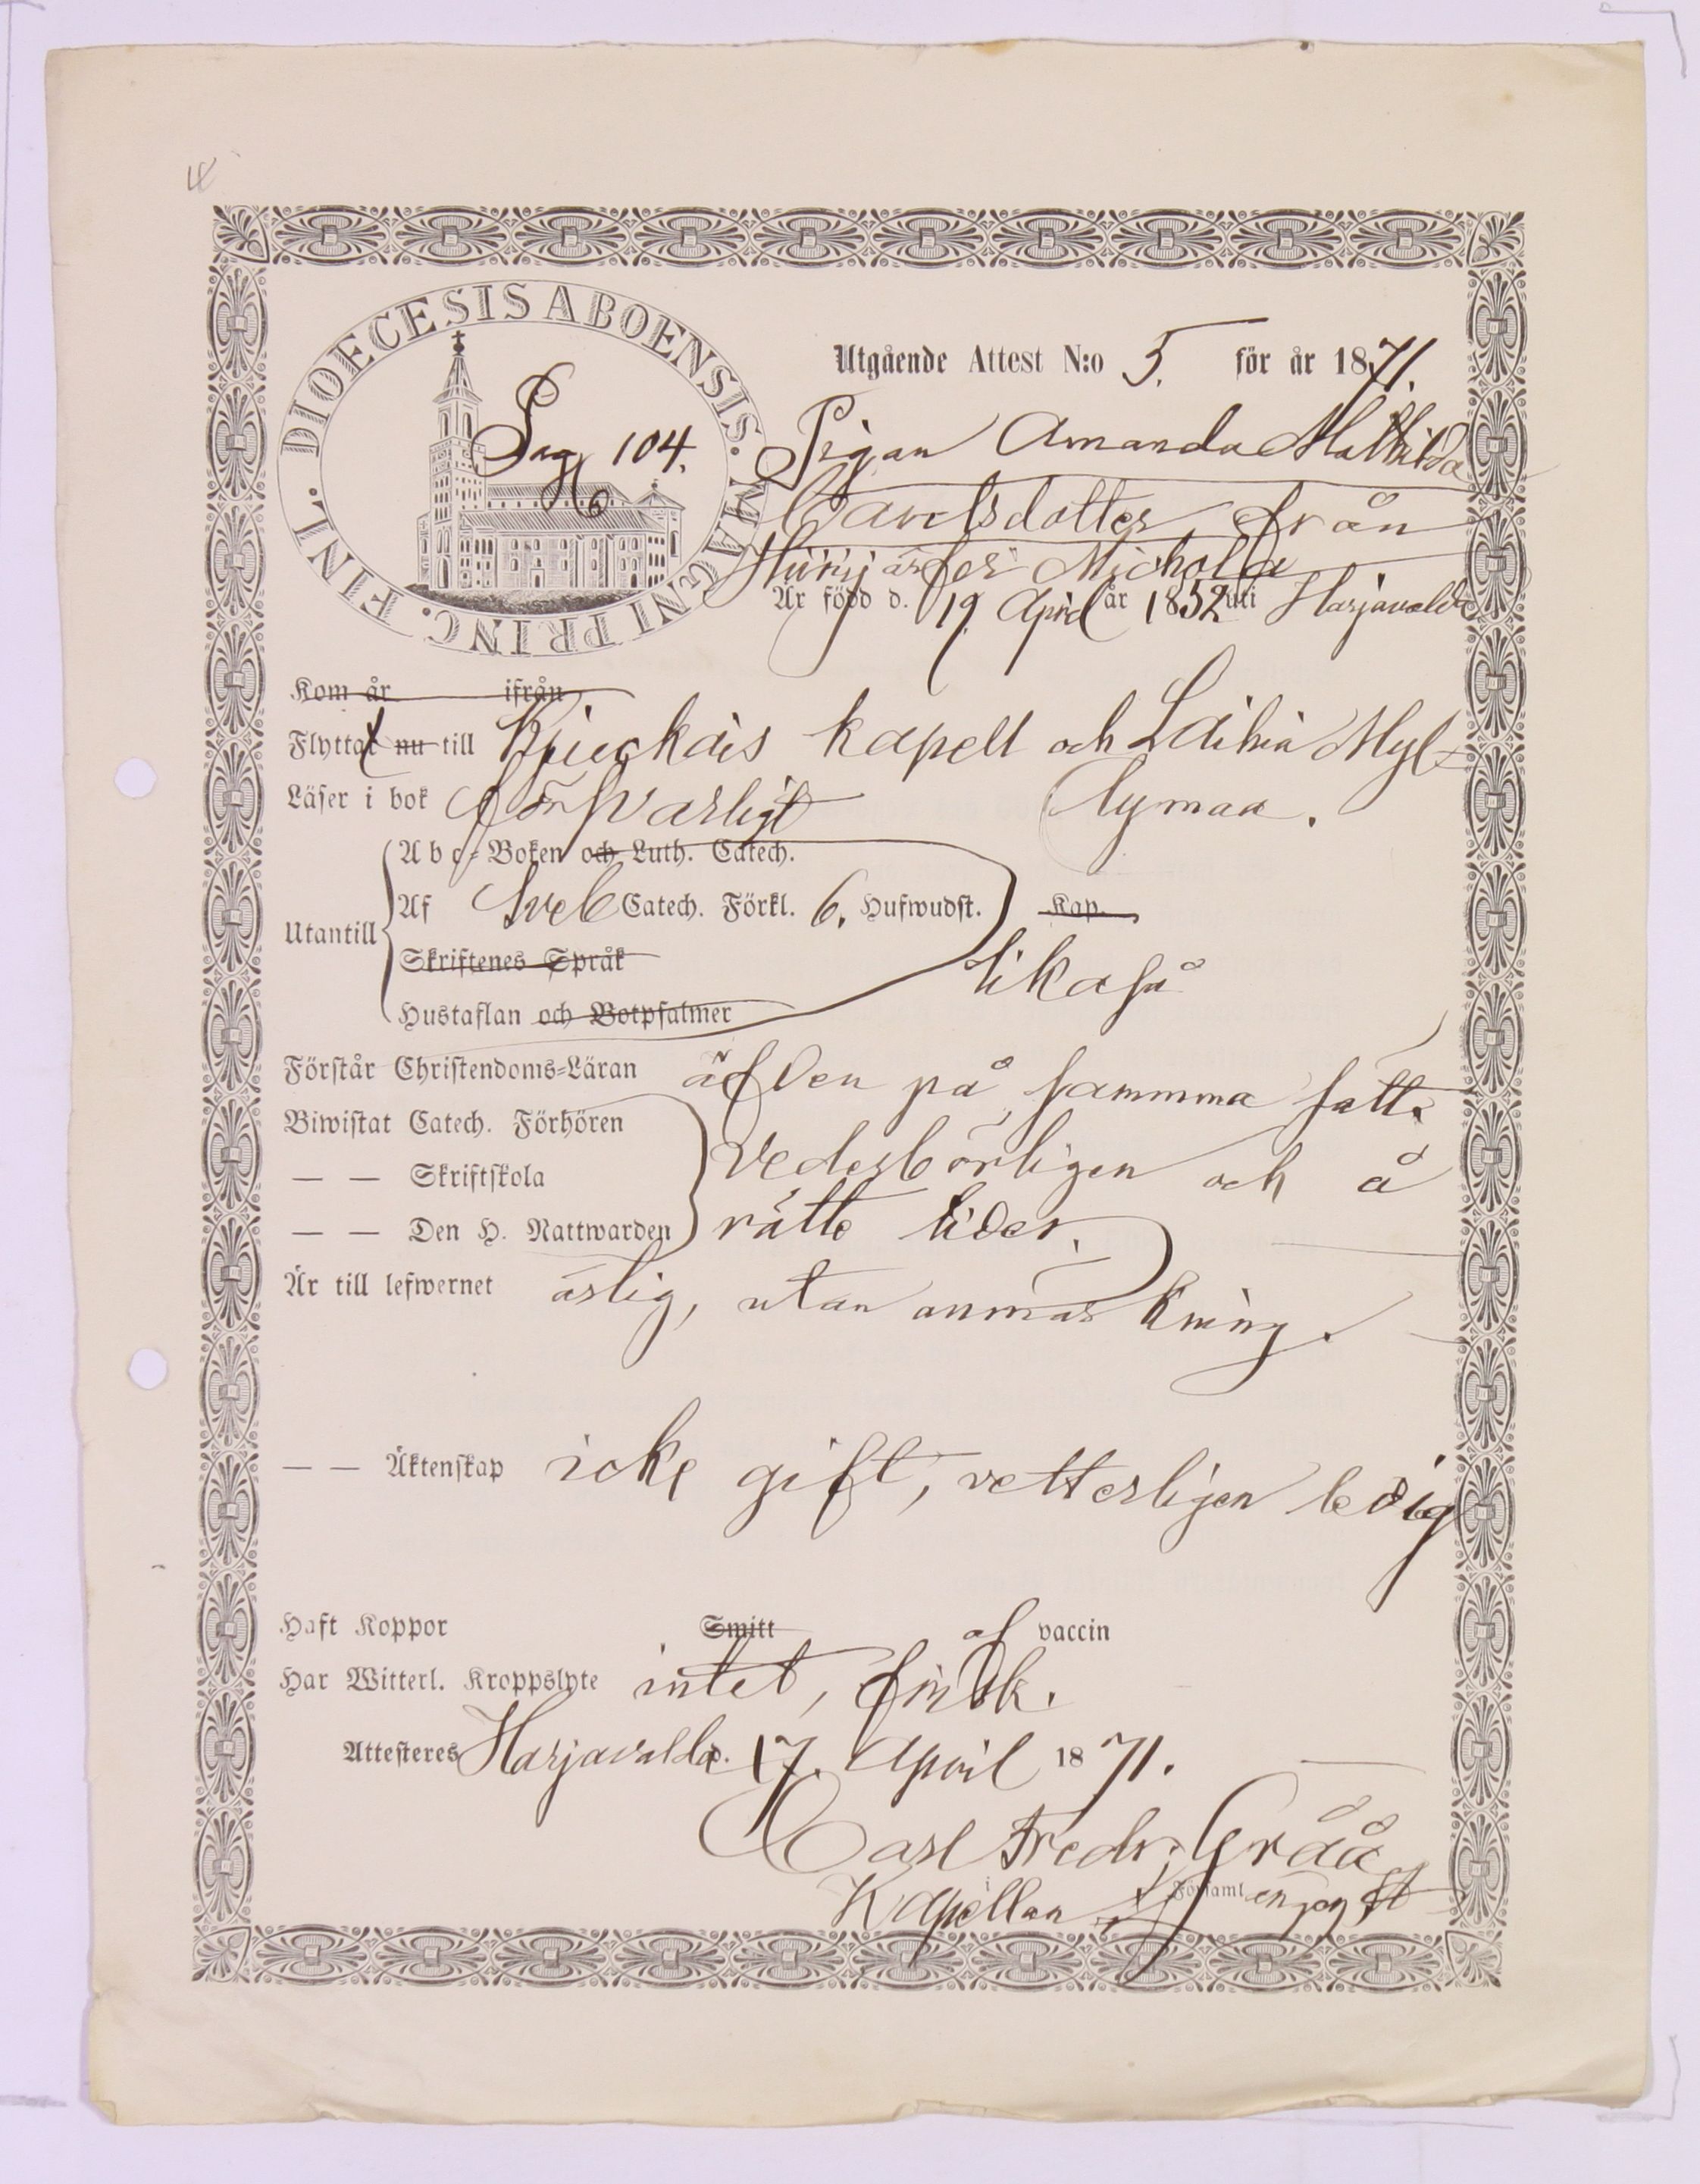 DIOECESIS ABOENSIS. MAGNI PRINC. FINL.
Pag 104.
Utgående Attest N:o 5. för år 1871.
Pigan Amanda Mathilda
från
Michola
Är född d. 19 April år 1852 uti Harjavalda
Kom år ifrån
Flyttat nu till kapell och Laihia Myl=
Läser i bok försvarligt lymaa.
Abc-Boken och Luth. Catech.
Utantill Af Sveb Catech. Förkl. 6. Hufwudst. Kap.
Skriftenes Språk
likaså
Hustaflan och Botpsalmer
Förstår Christendoms-Läran äfven på samma sätt.
Biwistat Catech. Förhören
— — Skriftskola vederbörligen och å
— — Den H. Nattwarden rätte tider.
Är till lefwernet ärlig, utan anmärkning.
— — Äktenskap icke gift, vetterligen ledig
Haft Koppor Smitt af vaccin
Har Witterl. Kroppslyte intet, finsk.
Attesteres Harjavalda d. 17. April 1871.
Carl Fredr. Gråå
Kapellan i Församl